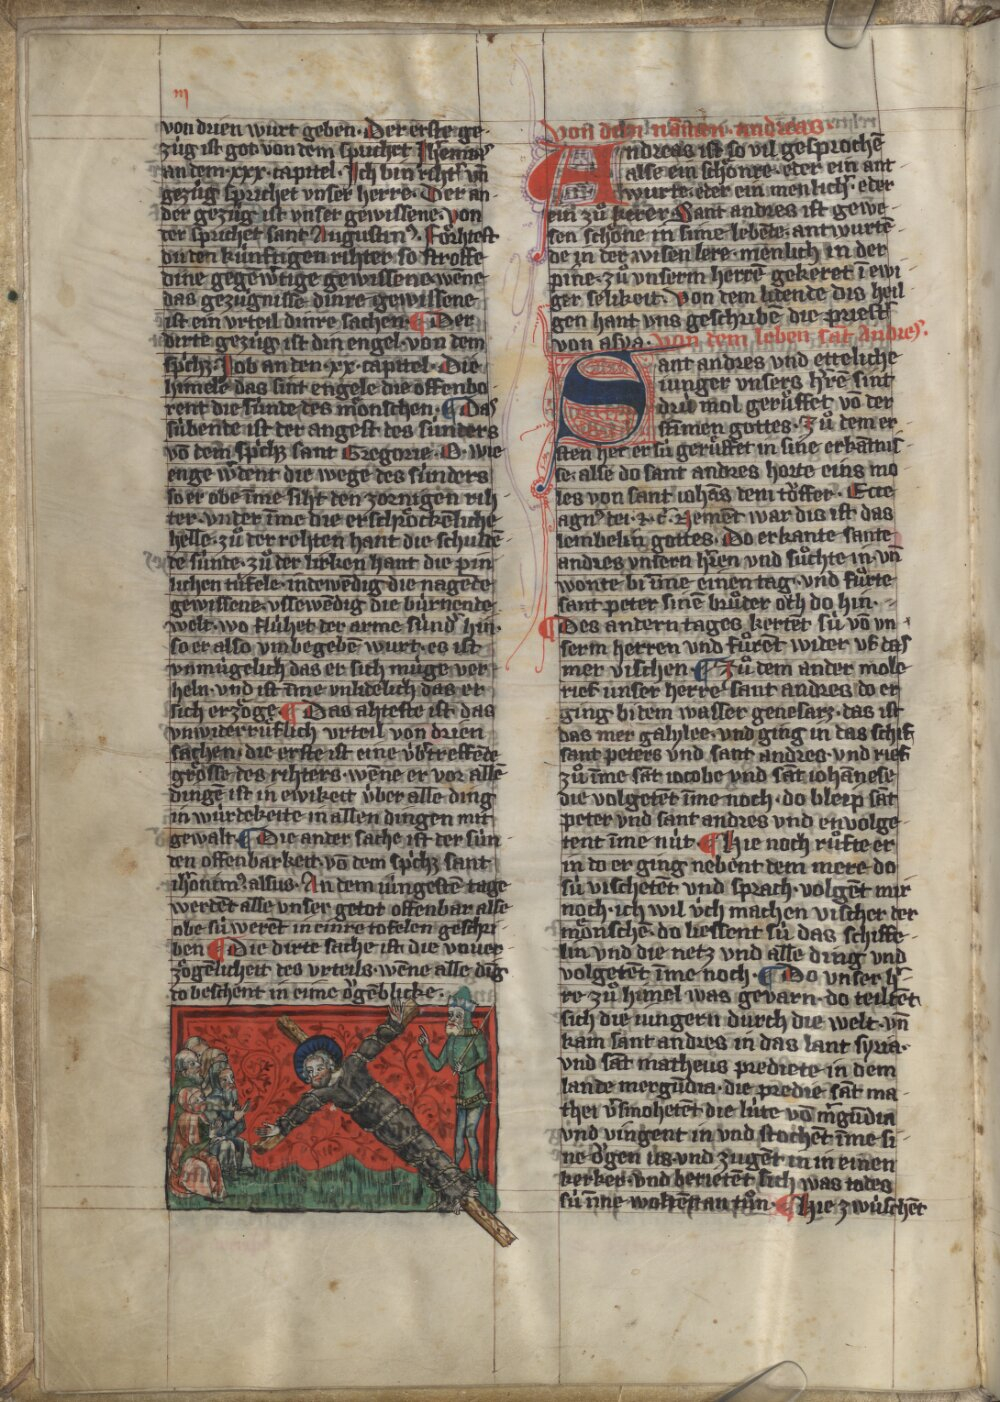 m
von drien wurt geben· Der erste ge-
zùg ist got von dem sprichet Jheremias
an dem ·xxx· capitel· Jch bin riht᷑ vn̄
gezùg sprichet vnser herre· Der an-
der gezùg ist vnser gewissene· von
der sprichet sant Augustin᷒· Fo̍rhtest
du den kùnftigen rihter so stroffe
dine gegēẘtige gewissene· wēne
das gezùgnisse dinre gewissene
ist ein vrteil dinre sachen· ¶ Der
dirte gezùg ist din engel· von dem
spͥchz Job an den ·xx· capitel· Die
himele das sint engele die offenbo-
rent die sùnde des mo̍nschen· ¶ Das
sùbende ist der angest des sùnders
vō dem spͥchz sant Gregorie· O· wie
enge ẘdent die wege des sùnders
so er obe īme siht den zornigen rih-
ter· vnder īme die erschro̍ckēliche
helle· zů der rehten hant die schuldē-
de sùnde· zů der lirken hant die pin-
lichen tùfele· indewēdig die nagēde
gewissene· vssewēdig die bùrnende
welt· wo flùhet der arme sùnd᷑ hin·
so er also vmbegebēn wurt· es ist
vnmùgelich das er sich mùge ver-
heln· vnd ist īme vnlidelich das er
sich erzo̍ge ¶ Das ahteste ist das
vnwiderrùflich vrteil von drien
sachen· die erste ist eine vb̾treffēde
gro̍sse des rihters· wēne er vor allē
dingē ist in ewikeit ùber alle ding
in wùrdekeite in allen dingen mit
gewalt· ¶ Die ander sache ist der sùn-
den offenbarkeit· vō dem spͥchz sant
ih᷑onim᷒ alsus· An dem iùngestē tage
werdēt alle vnser getot offenbar alse
obe sù werēt in einre tofelen geschri-
ben ¶ Die dirte sache ist die vnuer-
zo̍gēlicheit des vrteils· wēne alle dīg
do beschent in eime o̍gēblicke·
Von dem nāmen andreas·
Andreas ist so vil gesprochē
alse ein scho̍nre· eder ein ant-
wurte· eder ein menlich· eder
ein zů kerer· Sant andres ist gewe-
sen scho̍ne in sime lebēde· antwurtē-
de in der wisen lere· menlich in der
pine· zů vnserm herrē gekeret ī ewi-
ger selikeit· Von dem lidende dis heil-
gen hant vns geschribē die priest᷑
von asya· Von dem leben sāt Andres·
Sant andres vnd etteliche
iunger vnsers h᷑rē sint
drù mol gerùffet vō der
stīmen gottes· Zů dem er-
sten het er sù gerùffet in sine erkātnis-
se· alse do sant andres horte eins mo-
les von sant iohās dem to̍ffer· Ecce
agn᷒ dei ·⁊·c̄· Nement war dis ist das
lembelin gottes· Do erkante sante
andres vnsern h᷑ren vnd sůchte in· vn̄
wonte bi īme einen tag· vnd fůrte
sant peter sinē brůder och do hin·
¶ Des andern tages kertēt sù vō vn-
serm herren vnd fůrēt wider vf das
mer vischen· ¶ Zů dem ander mole
rief unser herre sant andres do er
ging bi dem wasser genesarz· das ist
das mer galylee· vnd ging in das schif
sant peters vnd sant andres· vnd rief
zů īme sāt iocobe vnd sāt iohānese
die volgetēt īme noch· do bleip sāt
peter vnd sant andres vnd envolge-
tent īme nùt· ¶ Hie noch růfte er
in do er ging nebent dem mere do
sù vischetēt vnd sprach· volgēt mir
noch· ich wil ùch machen vischer der
mo̍nschē· do liessent sù das schiffe-
lin vnd die netz vnd alle ding vnd
volgetēt īme noch· ¶ Do vnser h᷑-
re zů himel was gevarn· do teiltēt
sich die iungern durch die welt· vn̄
kam sant andres in das lant syria·
vnd sāt matheus prediete in dem
lande mergūdia· die predie sāt ma-
thei v᷑smohetēt die lùte vō m᷑gūdia
vnd vingent in vnd stochēt īme si-
ne o̍gen us· vnd zugēt in in einen
kerker· vnd berietēt sich was todes
sù īme woltēst an tůn· ¶ Hie zwùschēt